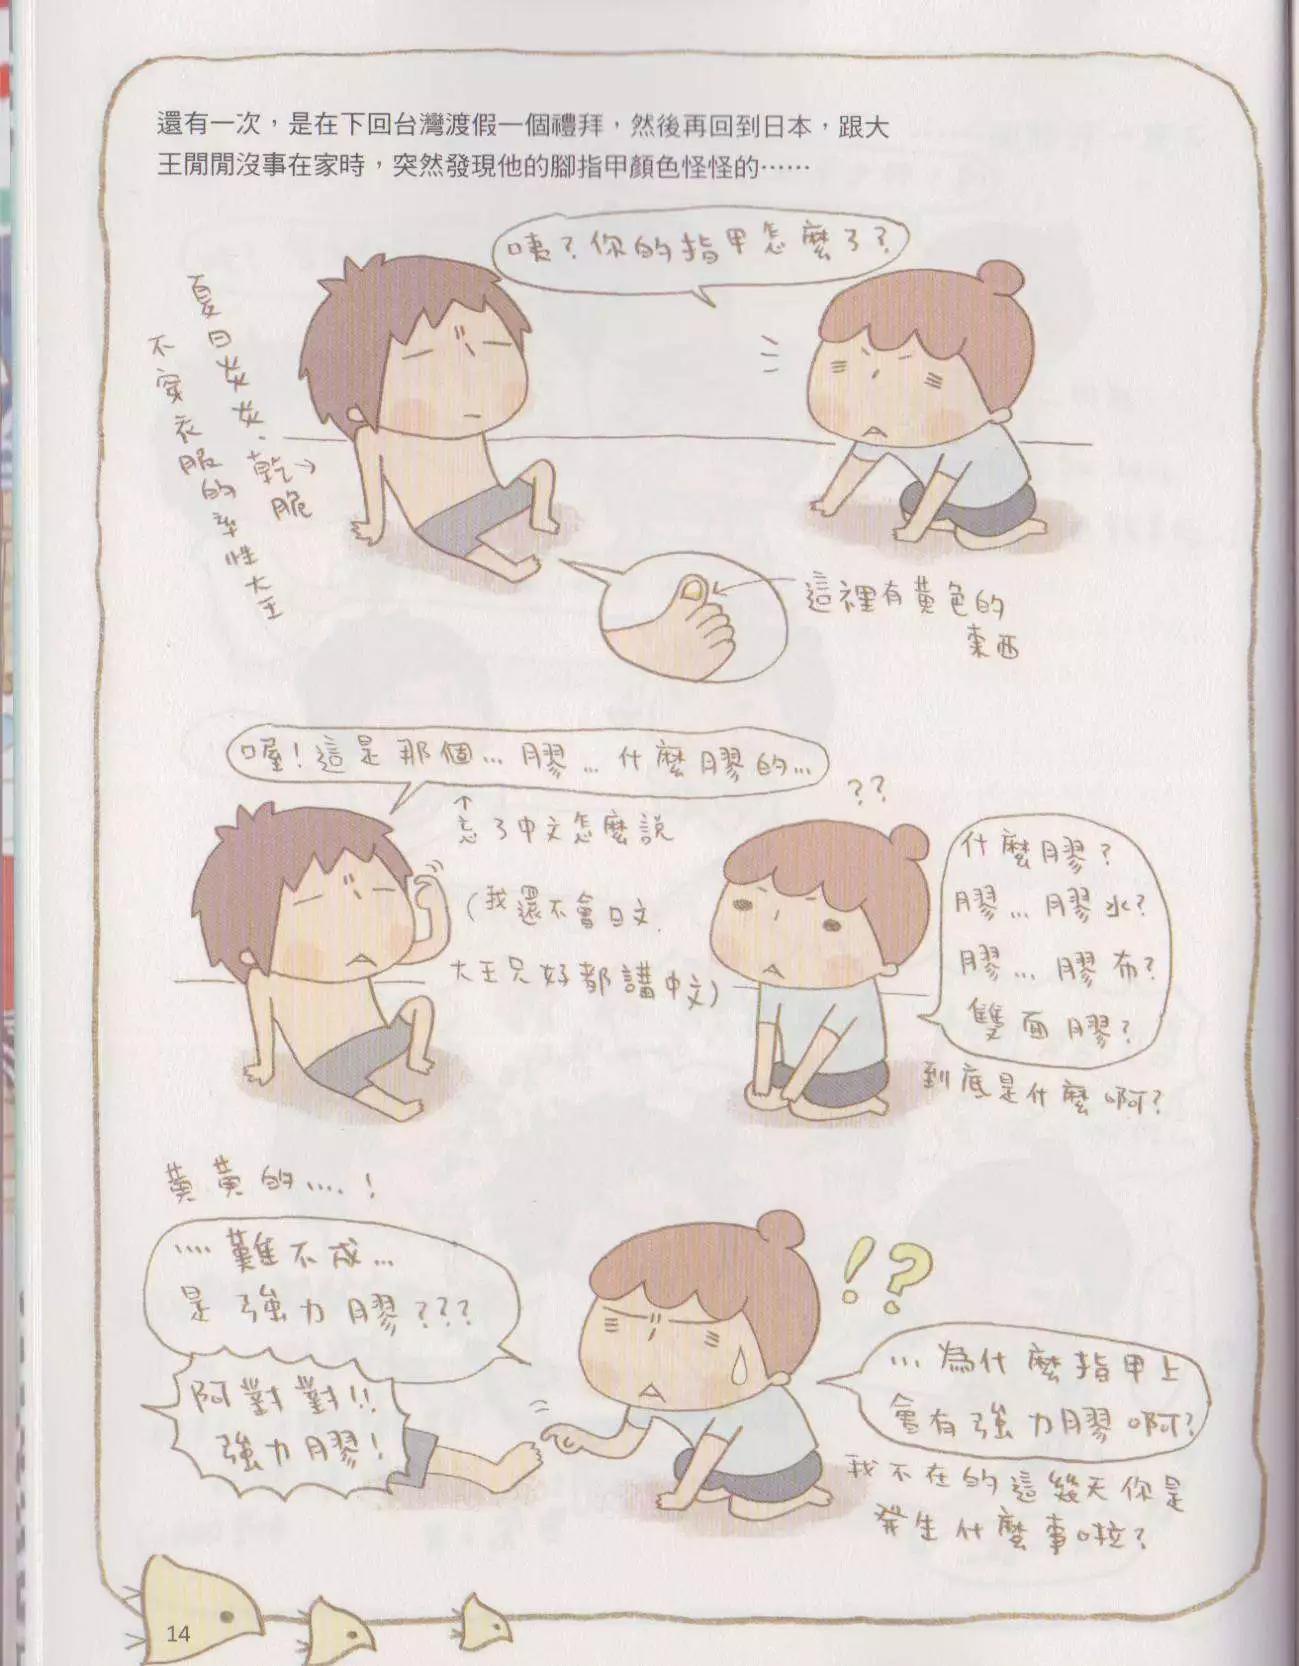 還有一次，是在下回台灣渡假一個禮拜，然後再回到日本，跟大
王閒閒沒事在家時，突然發現他的腳指甲顏色怪怪的……
咦？你的指甲怎麼了？
夏日炎炎，乾脆
不穿衣服的率性大王
這裡有黃色的
東西
喔！這是那個…膠…什麼膠的…
忘了中文怎麼說
（我還不會日文，
大王只好都講中文）
??
什麼膠？
膠…膠水？
膠…膠布？
雙面膠？
到底是什麼啊？
黃黃的….！
….難不成…
是強力膠???
!?
阿對對!!
強力膠！
…為什麼指甲上
會有強力膠啊？
我不在的這幾天你是
發生什麼事啦？
14